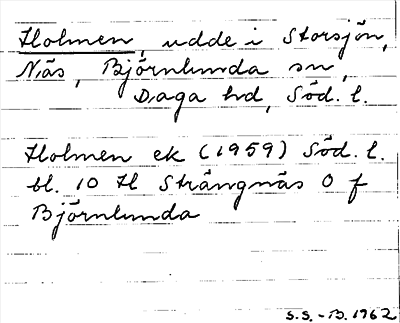 Holmen, udde i Storsjön,
Näs, Björnlunda sn,
Daga hd, Söd. l.
Holmen ek (1959) Söd. l.
bl. 10 H Strängnäs O f
Björnlunda
S.S. - B. 1962